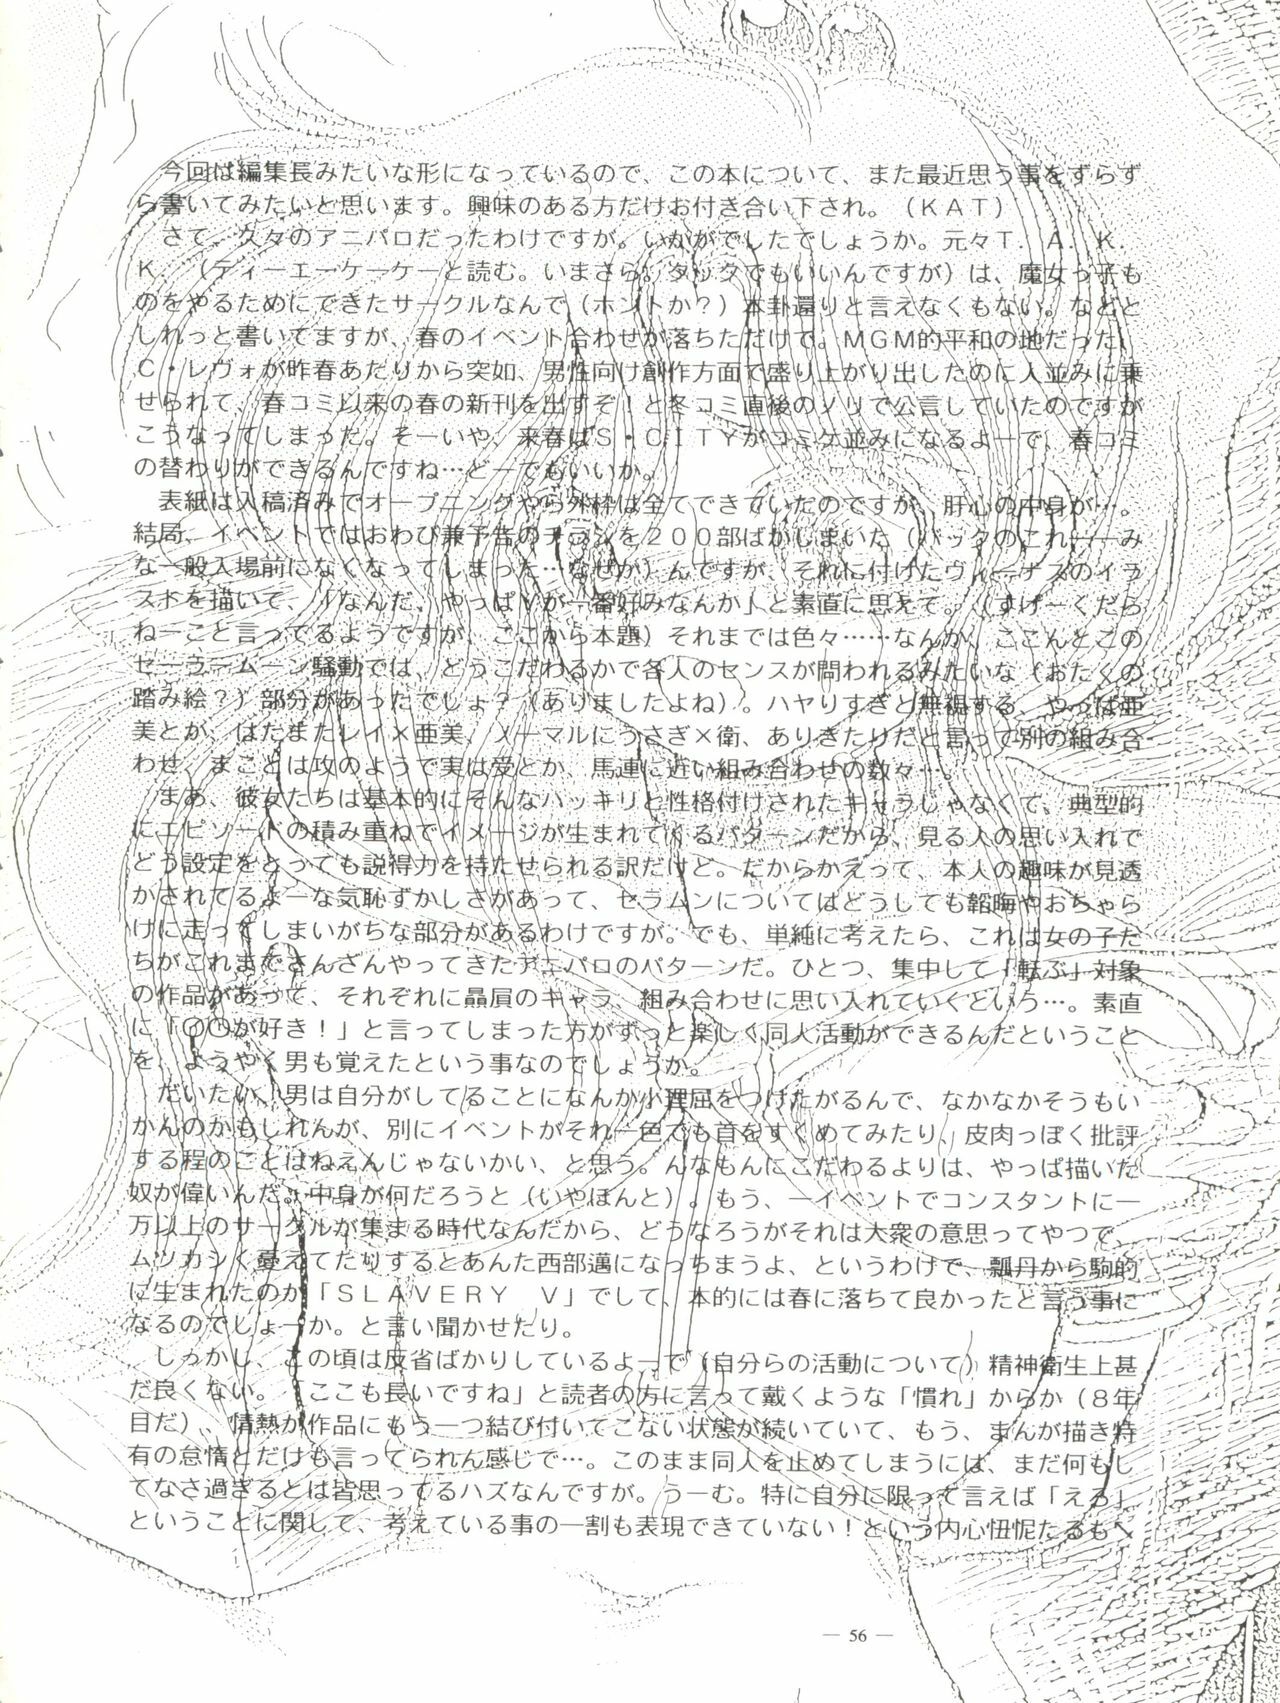 今回は編集長みたいな形になっているので、この本について、また最近思う事をずらず
ら書いてみたいと思います。興味のある方だけお付き合い下され。（ＫＡＴ）
さて、久々のアニパロだったわけですが。いかがでしたでしょうか。元々Ｔ．Ａ．Ｋ．
Ｋ．（ティーエーケーケーと読む。いまさら。タックでもいいんですが）は、魔女っ子も
のをやるためにできたサークルなんで（ホントか？）本卦還りと言えなくもない。などと
しれっと書いてますが、春のイベント合わせが落ちただけで。ＭＧＭ的平和の地だった、
Ｃ・レヴォが昨春あたりから突如、男性向け創作方面で盛り上がり出したのに人並みに乗
せられて、春コミ以来の春の新刊を出すぞ！と冬コミ直後のノリで公言していたのですが
こうなってしまった。そーいや、来春はＳ・ＣＩＴＹがコミケ並みになるよーで、春コミ
の替わりができるんですね…どーでもいいか。
表紙は入稿済みでオープニングやら外枠は全てできていたのですが、肝心の中身が…。
結局、イベントではおわび兼予告のチラシを２００部ばかしまいた（バッタのこれ━━み
な一般入場前になくなってしまった…なぜか）んですが、それに付けたヴィーナスのイラ
ストを描いて、「なんだ、やっぱＶが一番好みなんか」と素直に思えて。（すげーくだら
ねーこと言ってるようですが、ここから本題）それまでは色々……なんか、ここんとこの
セーラームーン騒動では、どうこだわるかで各人のセンスが問われるみたいな（おたくの
踏み絵？）部分があったでしょ？（ありましたよね）。ハヤりすぎと無視する、やっぱ亜
美とか、はたまたレイ×亜美、ノーマルにうさぎ×衛、ありきたりだと言って別の組み合
わせ、まことは攻のようで実は受とか、馬連に近い組み合わせの数々…。
まあ、彼女たちは基本的にそんなハッキリと性格付けされたキャラじゃなくて、典型的
にエピソードの積み重ねでイメージが生まれてくるパターンだから、見る人の思い入れで
どう設定をとっても説得力を持たせられる訳だけど。だからかえって、本人の趣味が見透
かされてるよーな気恥ずかしさがあって、セラムンについてはどうしても韜晦やおちゃら
けに走ってしまいがちな部分があるわけですが。でも、単純に考えたら、これは女の子た
ちがこれまでさんざんやってきたアニパロのパターンだ。ひとつ、集中して「転ぶ」対象
の作品があって、それぞれに贔屓のキャラ、組み合わせに思い入れていくという…。素直
に「○○が好き！」と言ってしまった方がずっと楽しく同人活動ができるんだということ
を、ようやく男も覚えたという事なのでしょうか。
だいたい、男は自分がしてることになんか小理屈をつけたがるんで、なかなかそうもい
かんのかもしれんが、別にイベントがそれ一色でも首をすくめてみたり、皮肉っぽく批評
する程のことはねえんじゃないかい、と思う。んなもんにこだわるよりは、やっぱ描いた
奴が偉いんだ。中身が何だろうと（いやほんと）。もう、一イベントでコンスタントに一
万以上のサークルが集まる時代なんだから、どうなろうがそれは大衆の意思ってやつで、
ムツカシく憂えてたりするとあんた西部邁になっちまうよ、というわけで、瓢箪から駒的
に生まれたのが「ＳＬＡＶＥＲＹ　Ｖ」でして、本的には春に落ちて良かったと言う事に
なるのでしょーか。と言い聞かせたり。
しっかし、この頃は反省ばかりしているよーで（自分らの活動について）精神衛生上甚
だ良くない。「ここも長いですね」と読者の方に言って戴くような「慣れ」からか（８年
目だ）、情熱が作品にもう一つ結び付いてこない状態が続いていて、もう、まんが描き特
有の怠惰とだけも言ってられん感じで…。このまま同人を止めてしまうには、まだ何もし
てなさ過ぎるとは皆思ってるハズなんですが。うーむ。特に自分に限って言えば「えろ」
ということに関して、考えている事の一割も表現できていない！という内心忸怩たるもへ
― 56 ―